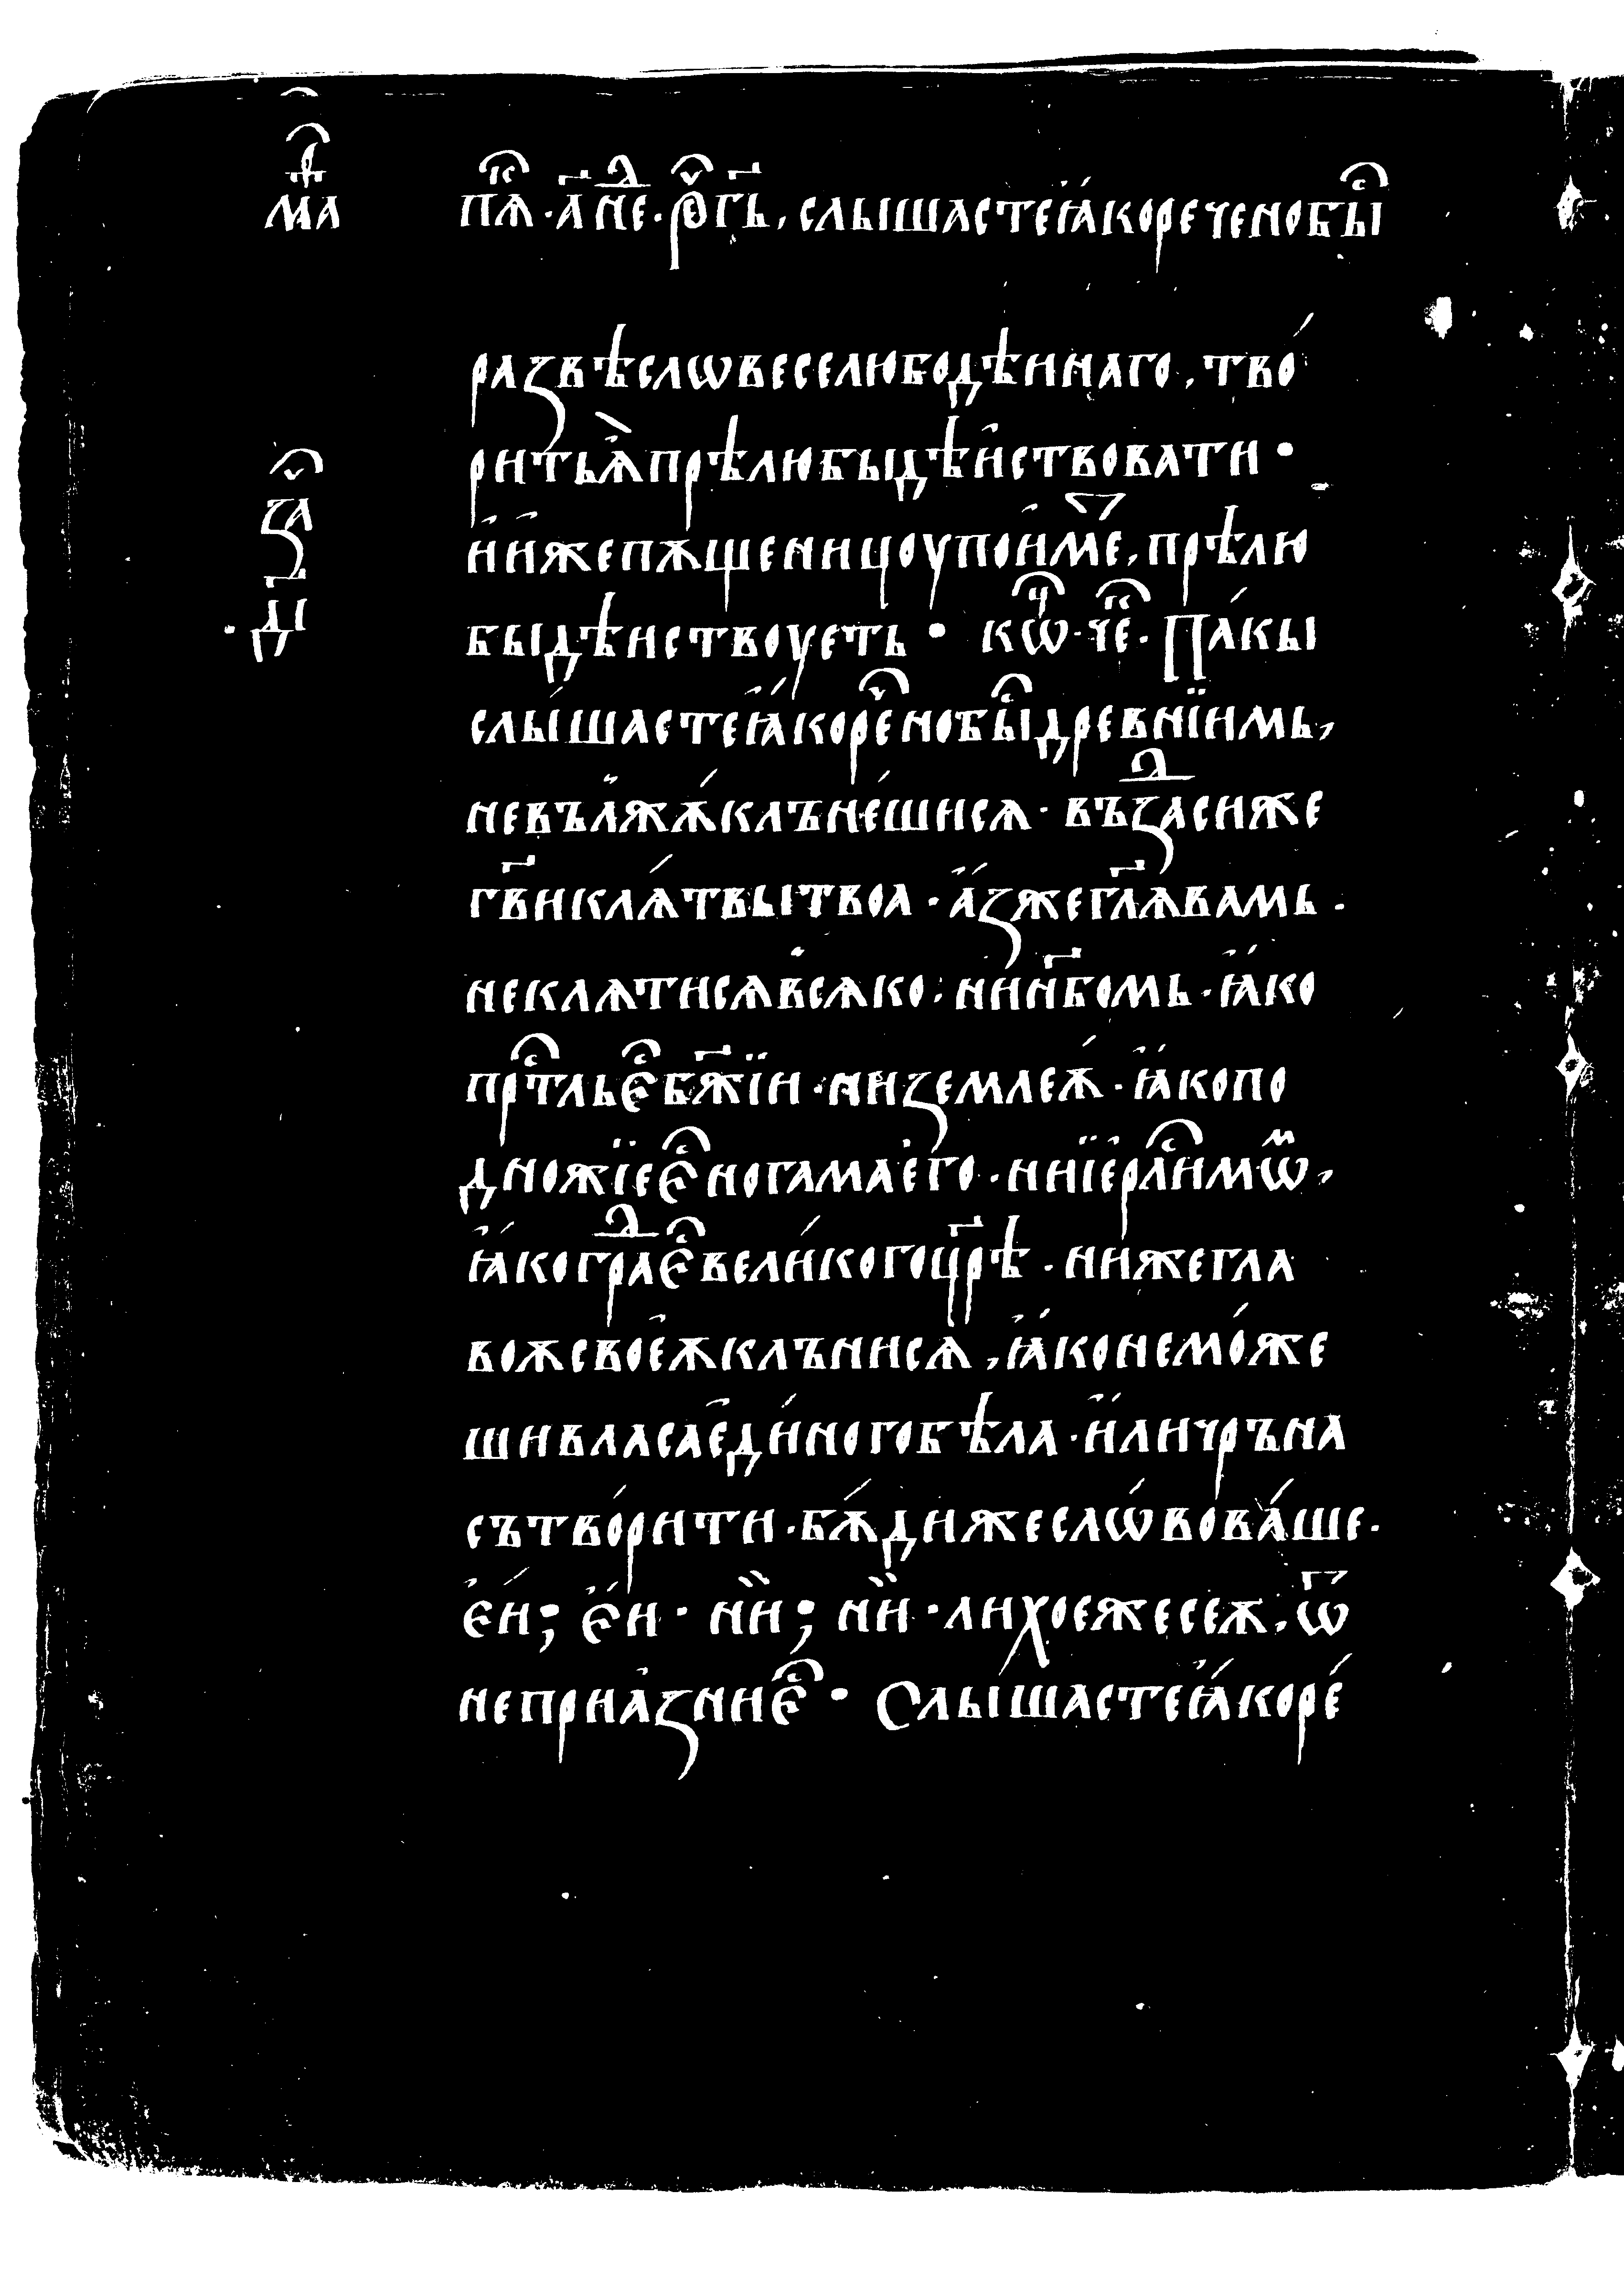 маⷮ҇
пѧⷦ҇ · а҃ не̅ⷣ · рѡⷱ҇ г҃ь, слышастеꙗ҆́кореченобыⷭ҇
развѣсловеселюбодѣннаго, тво́
ритьѧ̀прѣлюбыдѣи҆ствовати ·
и҆и҆жепѫщеницоупои҆́ме, прѣлю
заⷱ҇
быдѣиствоуеть · коⷩ҇ѡⷱ҇ · чеⷦ҇ · Па́кы
· д҃і
слы́шастеꙗ҆́кореⷱ҇нобыⷭ҇древнїимь,
невълѫжѫ́клъне́шисѧ · въꙁаⷣсиже
гв҃иклѧ́твытвоа · а҆́ꙁжегл҃ѧвамь ·
неклѧтисѧвсѧко · нин҃бомь · ꙗ҆́ко
прⷭ҇тльеⷭ҇бж҃їи · ниꙁемлеѫ́ · ꙗ҆́копо
дножїееⷭ҇ногамаего · ниїерлⷭ҇имѡⷨ,
ꙗ҆́когра̅ⷣеⷭ҇вели́когоцр҃ѣ · нижегла
воѫсвое҆ѫклънисѧ, ꙗ҆́конемо́же
шивласае҆ди́ногобѣла · и҆́личръна
сътво́рити · бѫ́дижеслѡ́вова́ше ·
е҆́и; е҆́и · нѝи; нѝи · лихоежесеѫ, ѿ
неприꙗ́ꙁниеⷭ҇ · Слы́шастеꙗ҆́коре́